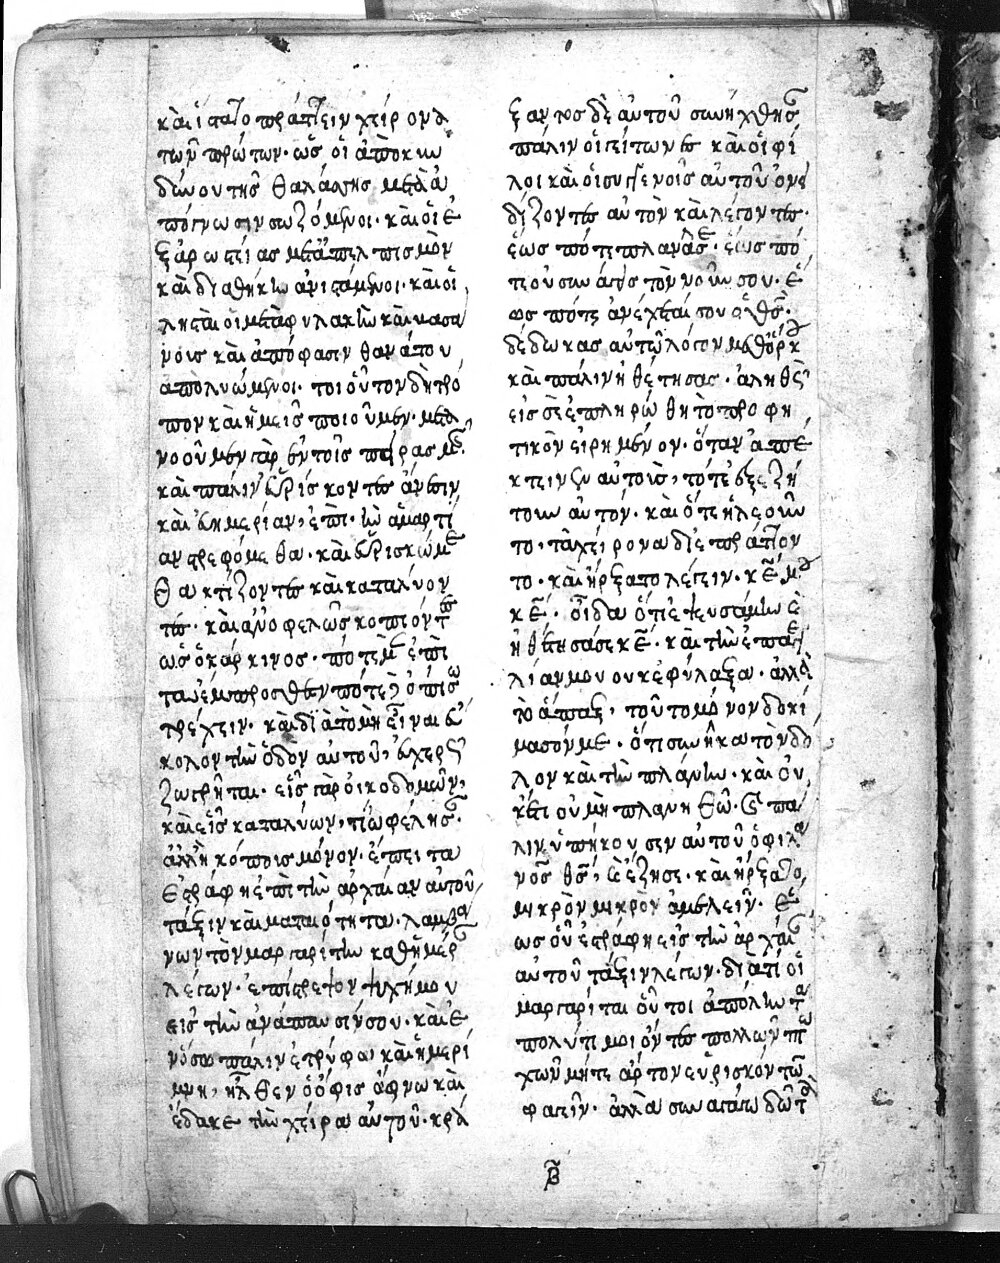 καὶ ἵστατο πράττειν χείρονα
τῶν πρώτων· ὡς οἱ ἀπὸ κιν
δύνου τῆς θαλάσσης μετὰ ἀ
πόγνωσιν σωζόμενοι· καὶ οἱ ἐ
ξ ἀρωστίας μετὰ ἀπελπισμὸν
καὶ διαθήκην ἀνιστάμενοι· καὶ οἱ
λησταὶ οἱ μετὰ φυλακὴν καὶ βασά
νοις καὶ ἀπόφασιν θανάτου
ἀπολυώμενοι· τοιοῦτον δὴ τρό
πον καὶ ἡμεῖς ποιοῦμεν· μετα
νοοῦμεν γὰρ ἐν τοῖς πειρασμοῖς
καὶ πάλιν εὑρίσκοντες ἄνεσιν
καὶ εὐημερίαν, ἐπὶ τὴν ἁμαρτί
αν στρεφόμεθα· καὶ εὑρισκώμε
θα κτίζοντες καὶ καταλύον
τες· καὶ ἀνοφελῶς κοπιόντες
ὡς ὁ καρκίνος· ποτὲ μὲν ἐπὶ
τὰ ἔμπροσθεν ποτὲ δὲ ὀπίσω
τρέχειν· καὶ διὰ τὸ μὴ εἶναι εὔ
κολον τὴν ὁδὸν αὐτοῦ, εὐχερῶς
ζωγρῆται· εἷς γὰρ οἰκοδομῶν,
καὶ εἷς καταλύων, τί ὠφέλησαν·
ἀλλ' ἢ κόποις μόνον· ἔπειτα
ἐστράφη ἐπὶ τὴν ἀρχαίαν αὐτοῦ
τάξιν καὶ ματαιότητα· λαμβά
νων τὸν μαργαρίτην καθ' ἡμέραν
λέγων· ἐπίστρεψον ψυχή μου
εἰς τὴν ἀνάπαυσίν σου· καὶ ἐ
νόσω πάλιν ἐτρύφα καὶ ἡμερί
μνη, ἦλθεν ὁ ὄφις ἄφνω καὶ
ἔδακε τὴν χεῖρα αὐτοῦ· κρά
ξαντος δὲ αὐτοῦ συνήχθησαν
πάλιν οἱ γείτωνες καὶ οἱ φί
λοι καὶ οἱ συγγενοῖς αὐτοῦ ὀνει
δίζοντες αὐτὸν καὶ λέγοντες·
ἕως πότε πλανᾶσαι· ἕως πό
τε οὐ συνάγεις τὸν νοῦν σου· ἕ
ως πότε ἀνέχεταί σου ὁ θεός·
δέδωκας αὐτῷ λόγον μεθ' ὅρκου
καὶ πάλιν ἠθέτησας· ἀληθῶς
εἰς σὲ ἐπληρώθη τὸ προφη
τικὸν εἰρημένον· ὅταν ἀπέ
κτεινεν αὐτοῖς, τότε ἐξεζή
τουν αὐτόν· καὶ ὅτε ἠλεοῦν
το· τὰ χείρονα διεπράττον
το· καὶ ἤρξατο λέγειν· κε μου
κε· οἶδα ὅτι ἐψευσάμην ἐ
ἠθέτησά σε κε· καὶ τὴν ἐπαγγε
λίαν μου οὐκ ἐφύλαξα· ἀλλὰ
τὸ ἅπαξ, τοῦτο μόνον δοκί
μασόν με· ὅτι συνῆκα τὸν δό
λον καὶ τὴν πλάνην· καὶ οὐ
κέτι οὐ μὴ πλανηθῶ· καὶ πά
λιν ὑπήκουσεν αὐτοῦ ὁ φιλάν
νος θς, καὶ ἔζησε· καὶ ἤρξατο,
μικρὸν μικρὸν ἀμελεῖν· ἕ
ως οὗ ἐστράφη εἰς τὴν ἀρχαίαν
αὐτοῦ τάξιν λέγων· διατί οἱ
μαργαρίται οὗτοι ἀπόλλυνται
πολύτιμοι ὄντες πολλῶν πτω
χῶν μήτε ἄρτον εὑρισκόντων
φαγεῖν· ἀλλὰ συναγάγω αὐτά
β